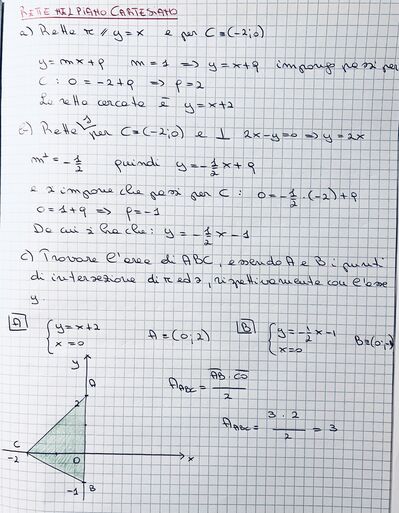 RETTE NEL PIANO CARTESIANO
a) Retta r // y=x e per C≡(-2;0)
y=mx+q m=1 => y=x+q impongo passi per
C: 0=-2+q => q=2
La retta cercata è y=x+2
b) Retta s per C≡(-2;0) e ⊥ 2x-y=0 => y=2x
m¹=-1/2 quindi y=-1/2x+q
e s impone che passi per C: 0=-1/2·(-2)+q
0=1+q => q=-1
Da cui s ha che: y=-1/2x-1
c) Trovare l'area di ABC, essendo A e B i punti
di intersezione di r ed s, rispettivamente con l'asse
y.
A {y=x+2 x=0 A≡(0;2) B {y=-1/2x-1 x=0 B≡(0;-1)
y
A
A_ABC = AB·CO/2
2
A_ABC = 3·2/2 = 3
C
O
-2
x
-1 B